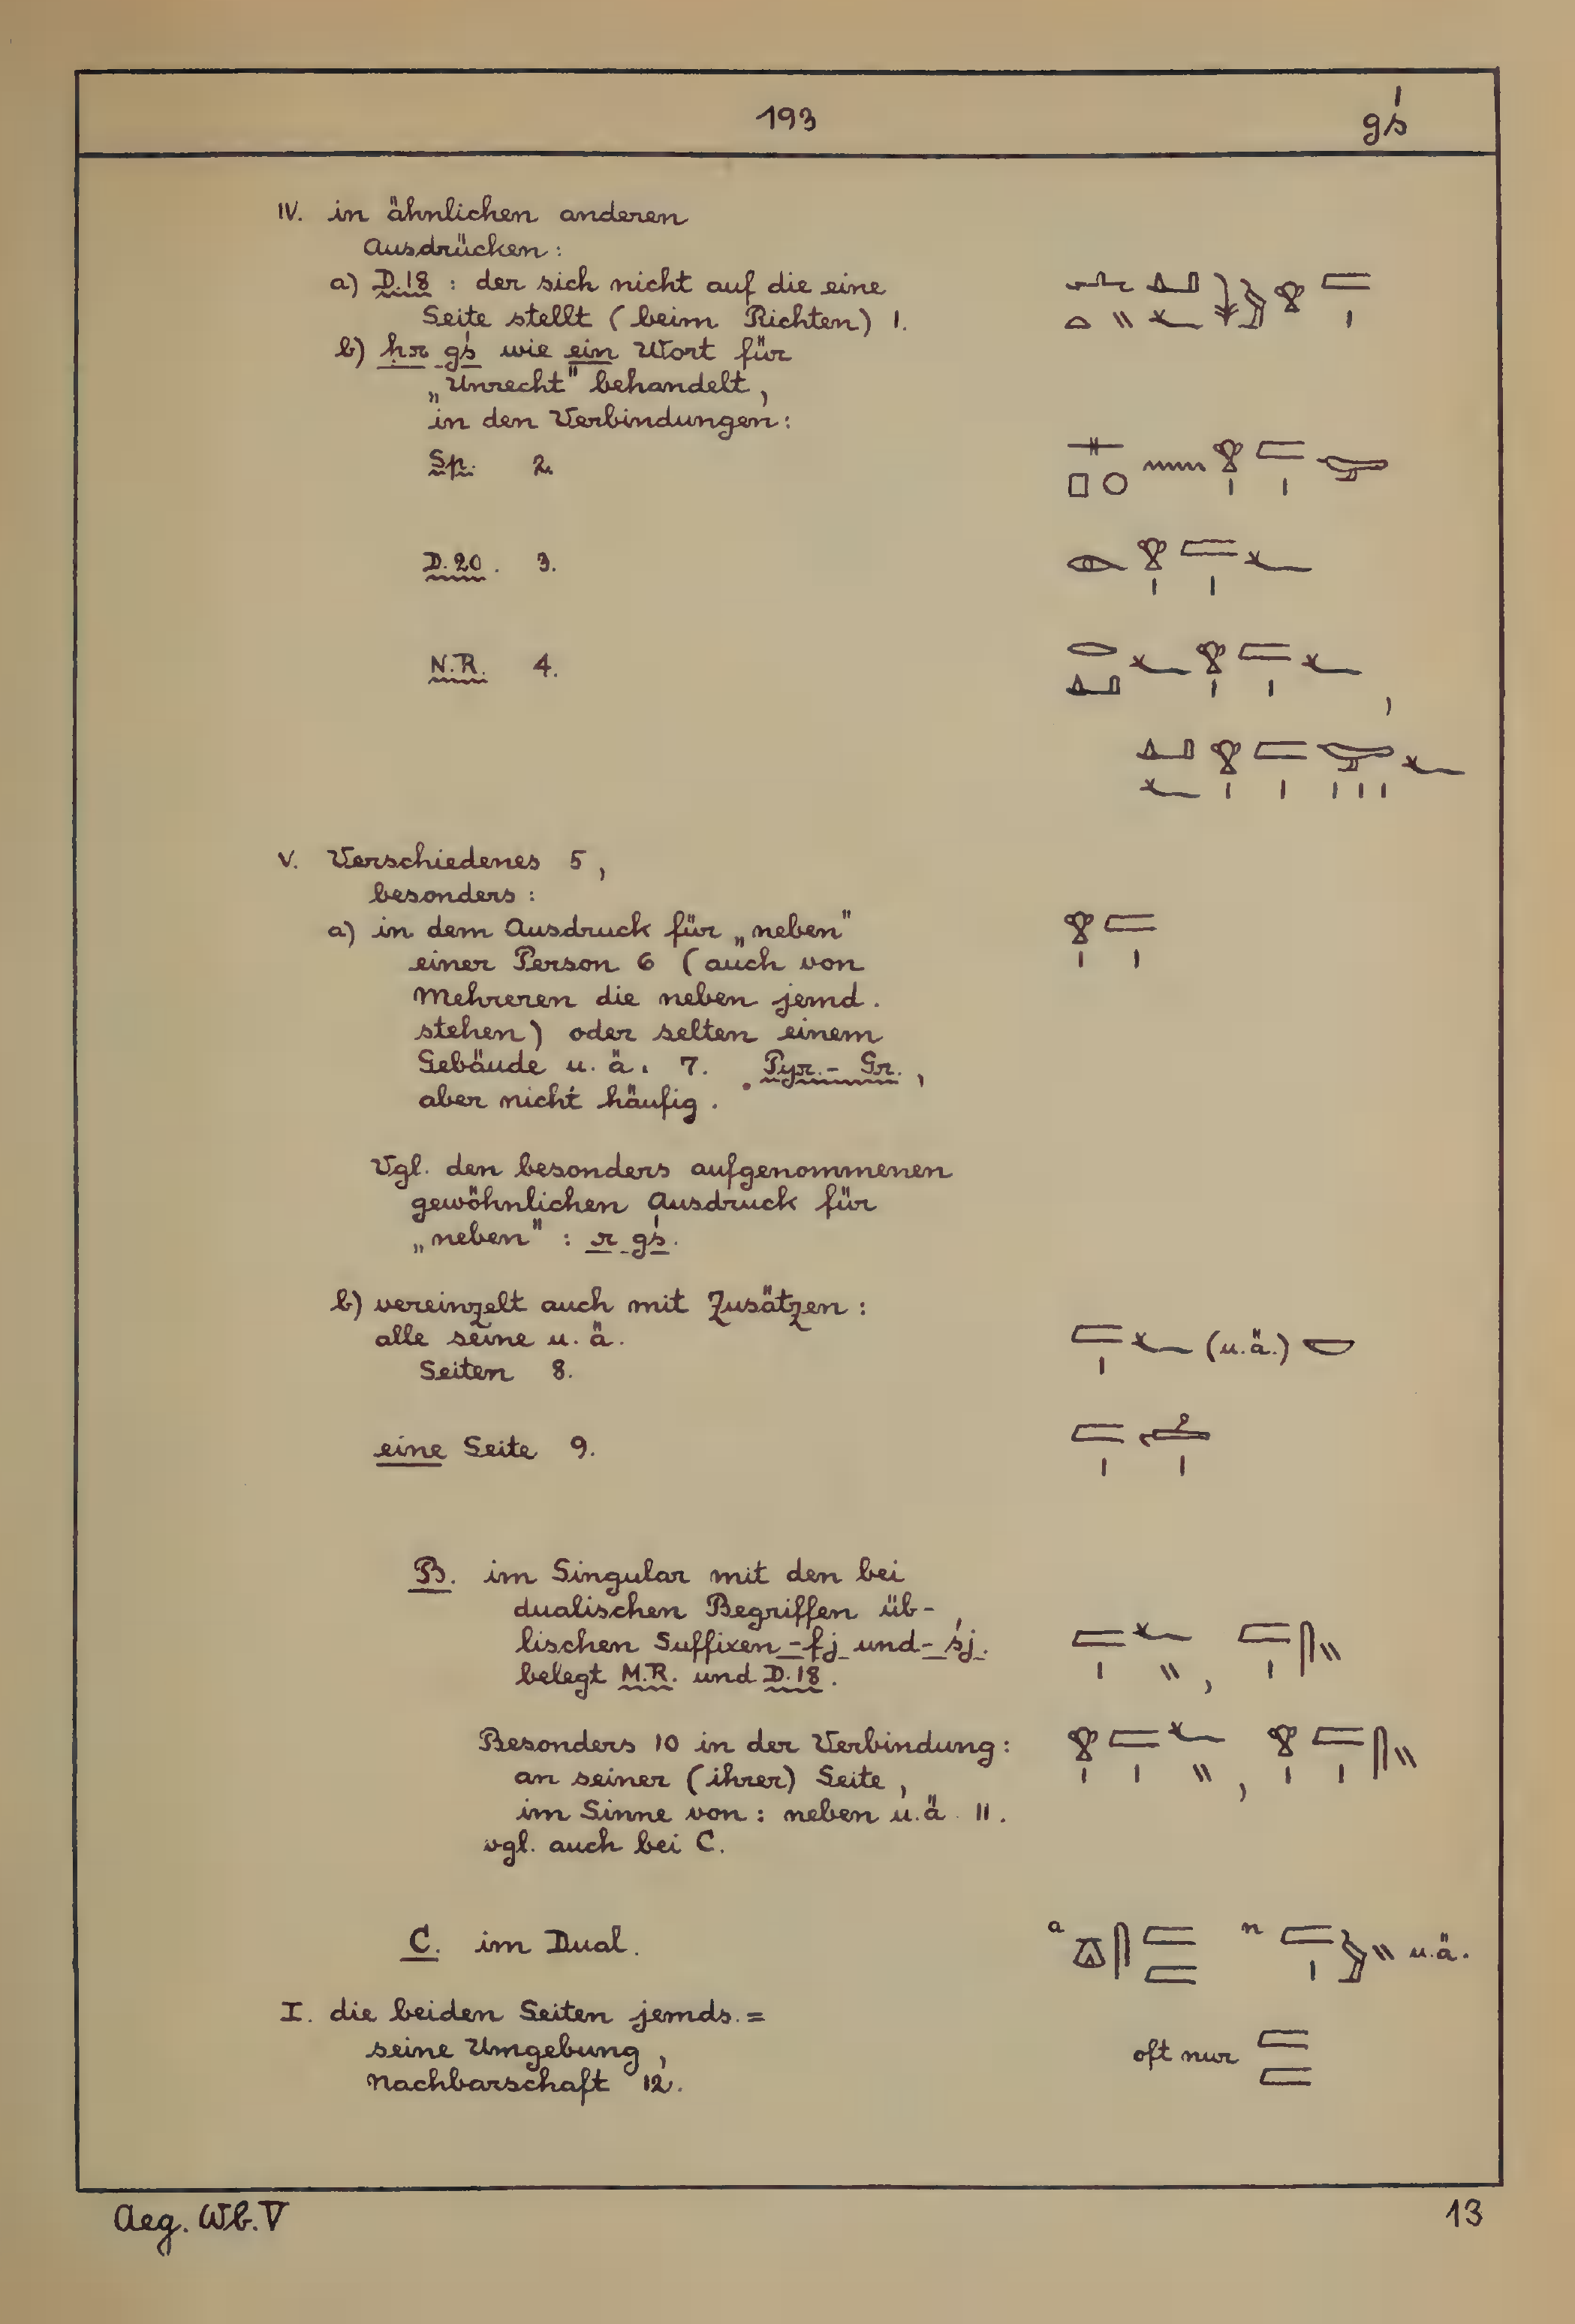 193
gś
IV. in ähnlichen anderen
Ausdrücken:
a) D.18 : der sich nicht auf die eine
Seite stellt (beim Richten) 1.
b) ḥr gś wie ein Wort für
„Unrecht" behandelt,
in den Verbindungen:
Sp. 2.
D.20. 3.
N.R. 4.
,
V. Verschiedenes 5,
besonders:
a) in dem Ausdruck für „neben"
einer Person 6 (auch von
Mehreren die neben jemd.
stehen) oder selten einem
Gebäude u. ä. 7. Pyr.- Gr.,
aber nicht häufig.
Vgl. den besonders aufgenommenen
gewöhnlichen Ausdruck für
„neben" : r gś.
b) vereinzelt auch mit Zusätzen:
alle seine u. ä. (u.ä.)
Seiten 8.
eine Seite 9.
B. im Singular mit den bei
dualischen Begriffen üb-
lischen Suffixen -fj und -śj.
belegt M.R. und D.18. ,
Besonders 10 in der Verbindung:
an seiner (ihrer) Seite, ,
im Sinne von: neben u.ä. 11.
vgl. auch bei C.
C. im Dual. a n u.ä.
I. die beiden Seiten jemds. =
seine Umgebung, oft nur
Nachbarschaft 12.
Aeg. Wb. V
13